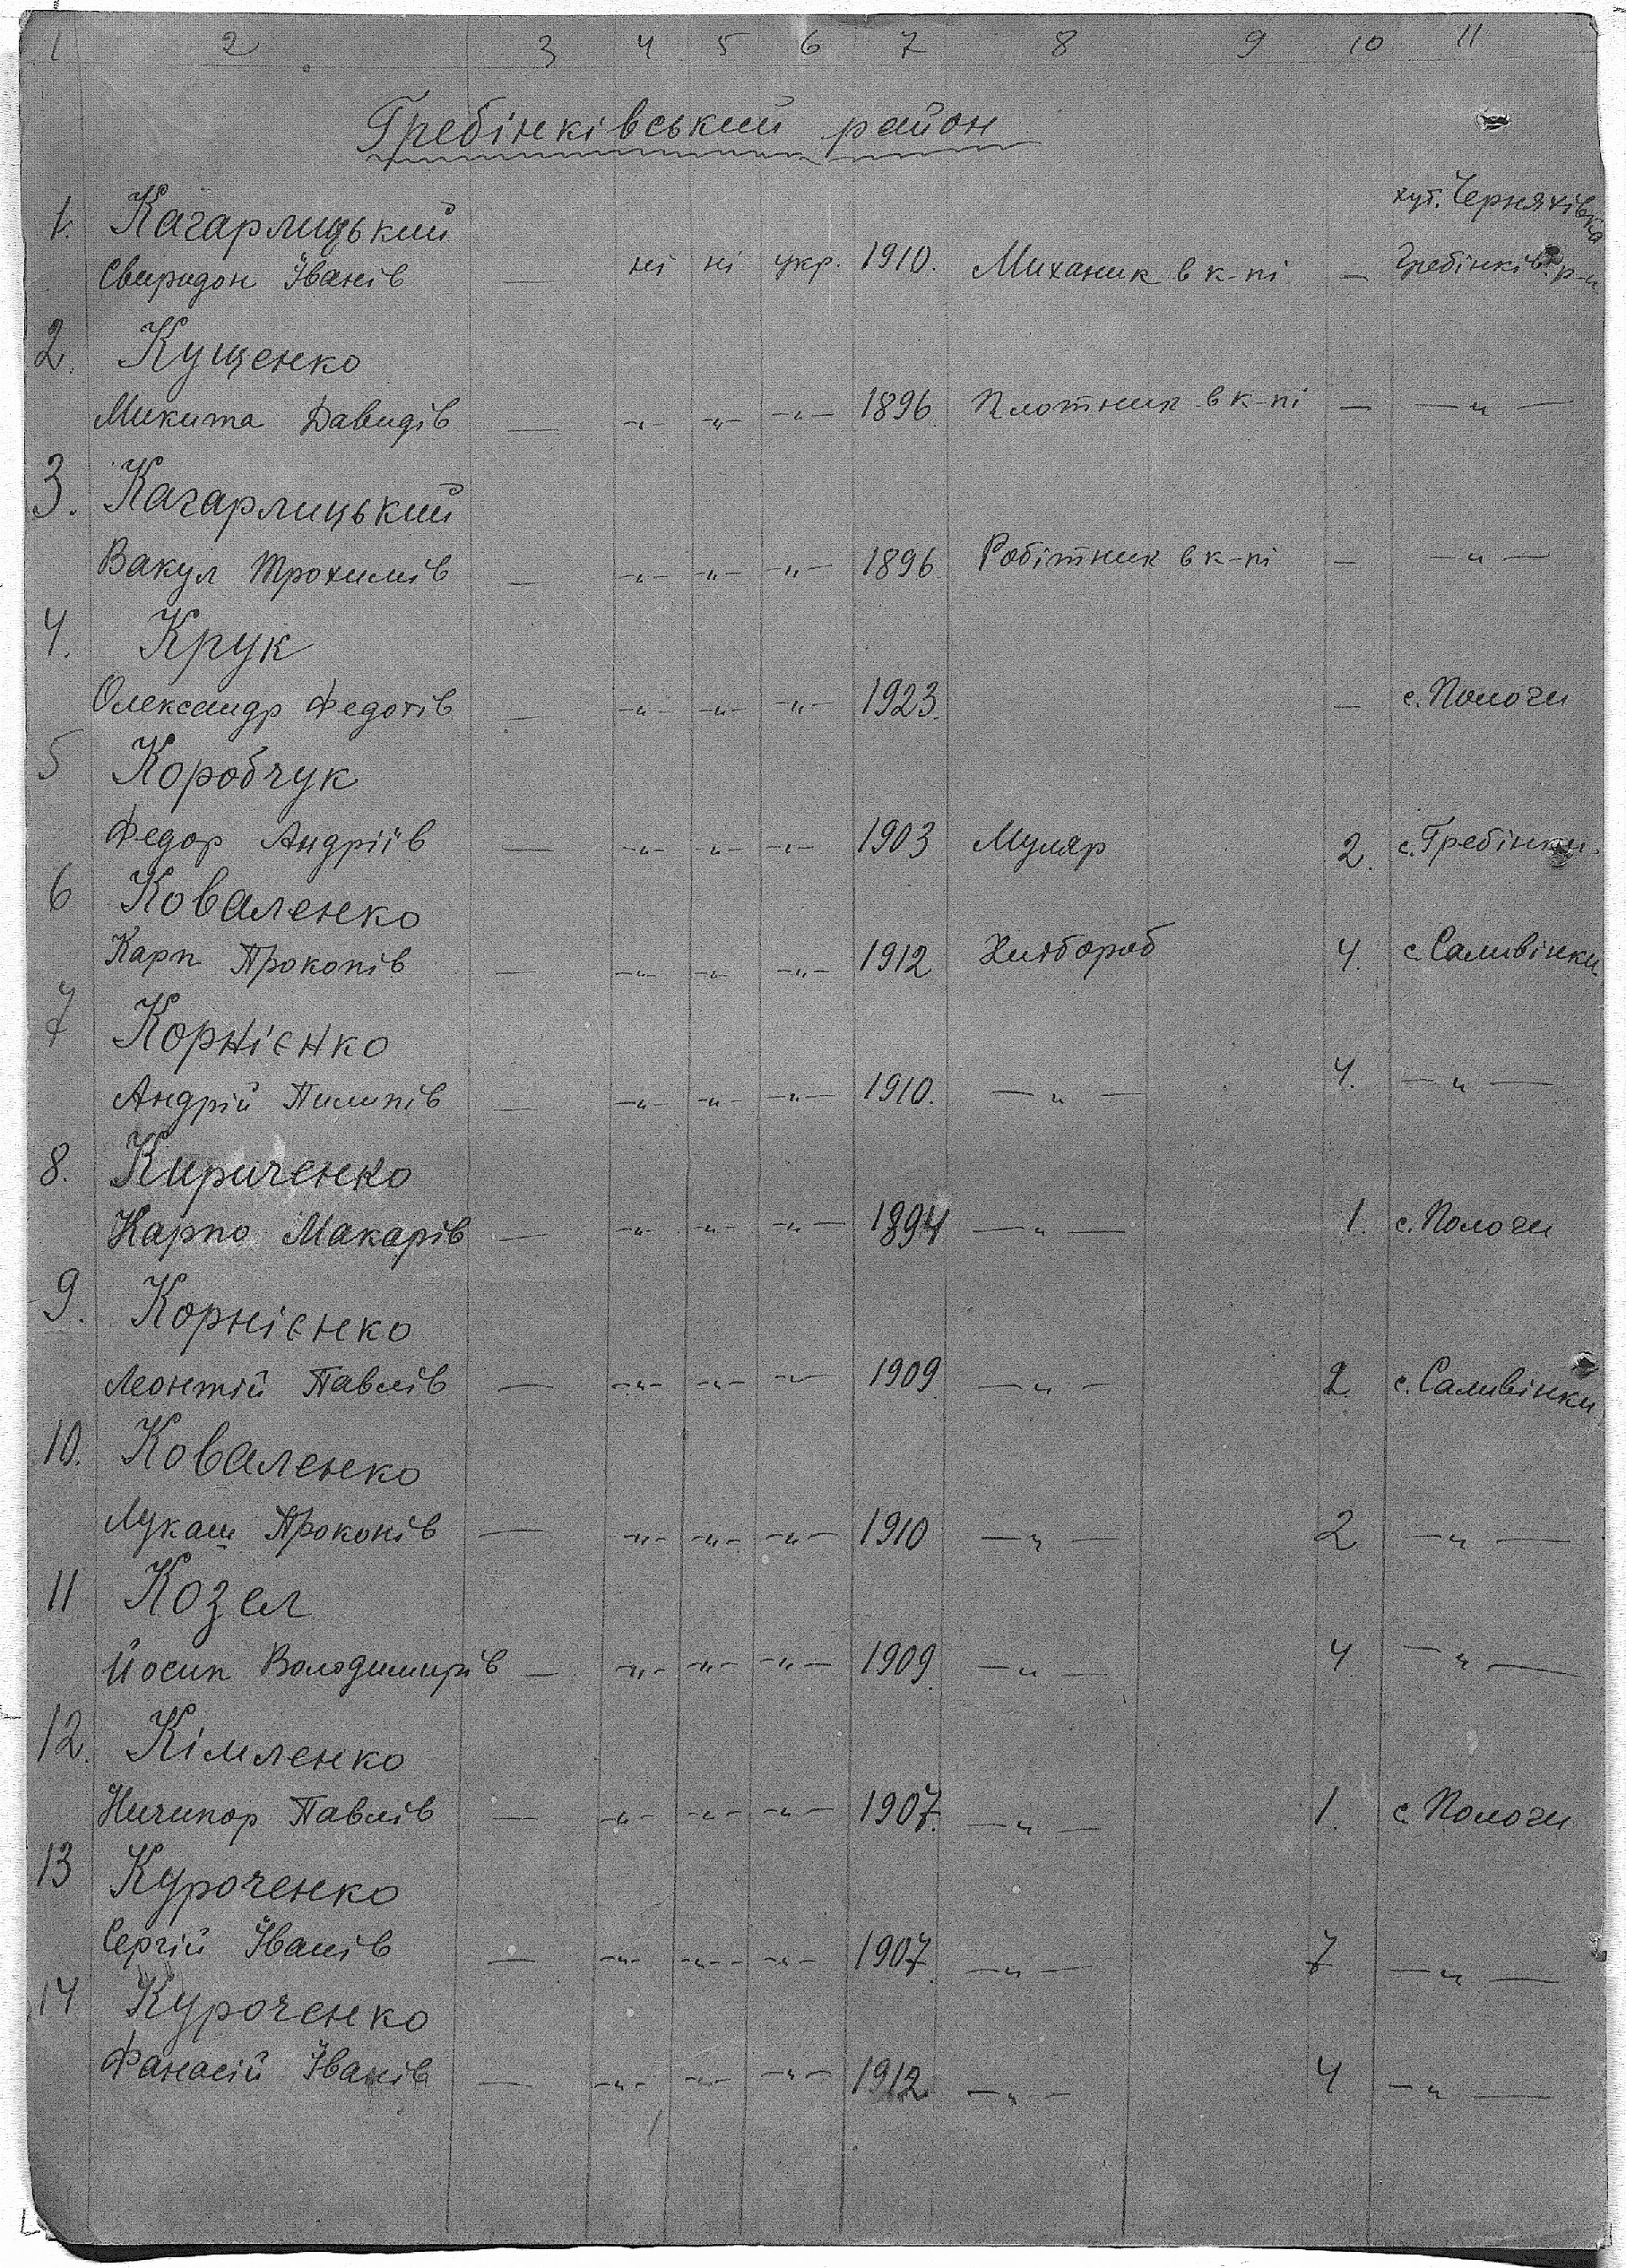 1 2 3 4 5 6 7 8 9 10 11
Гребінківський район
хут. Черняхівка
1. Кагарлицький
Свиридон Іванів — ні ні укр. 1910. Миханик в к-пі — Гребінків. р-н
2. Кущенко
Микита Давидів — -"- -"- -"- 1896 Плотник в к-пі — — " —
3. Кагарлицький
Вакул Трохимів — -"- -"- -"- 1896 Робітник в к-пі — — " —
4. Крук
Олександр Федотів — -"- -"- -"- 1923. — с. Пологи
5 Коробчук
Федор Андріїв — -"- -"- -"- 1903 Муляр 2. с. Гребінки.
6 Коваленко
Карп Прокопів — -"- -"- -"- 1912 Хлібороб 4. с. Саливінки.
7 Корнієнко
Андрій Пилипів — -"- -"- -"- 1910. — " — 4. — " —
8. Кириченко
Карпо Макарів — -"- -"- -"- 1894 — " — 1. с. Пологи
9. Корнієнко
Леонтій Павлів — -"- -"- -"- 1909 — " — 2. с. Саливінки
10. Коваленко
Лукаш Прокопів — -"- -"- -"- 1910 — " — 2 — " —
11 Козел
Йосип Володимирів — -"- -"- -"- 1909. — " — 4 — " —
12. Кімленко
Ничипор Павлів — -"- -"- -"- 1907. — " — 1. с. Пологи
13 Куроченко
Сергій Іванів — -"- -"- -"- 1907. — " — 7 — " —
14 Куроченко
Фанасій Іванів — -"- -"- -"- 1912. — " — 4 — " —